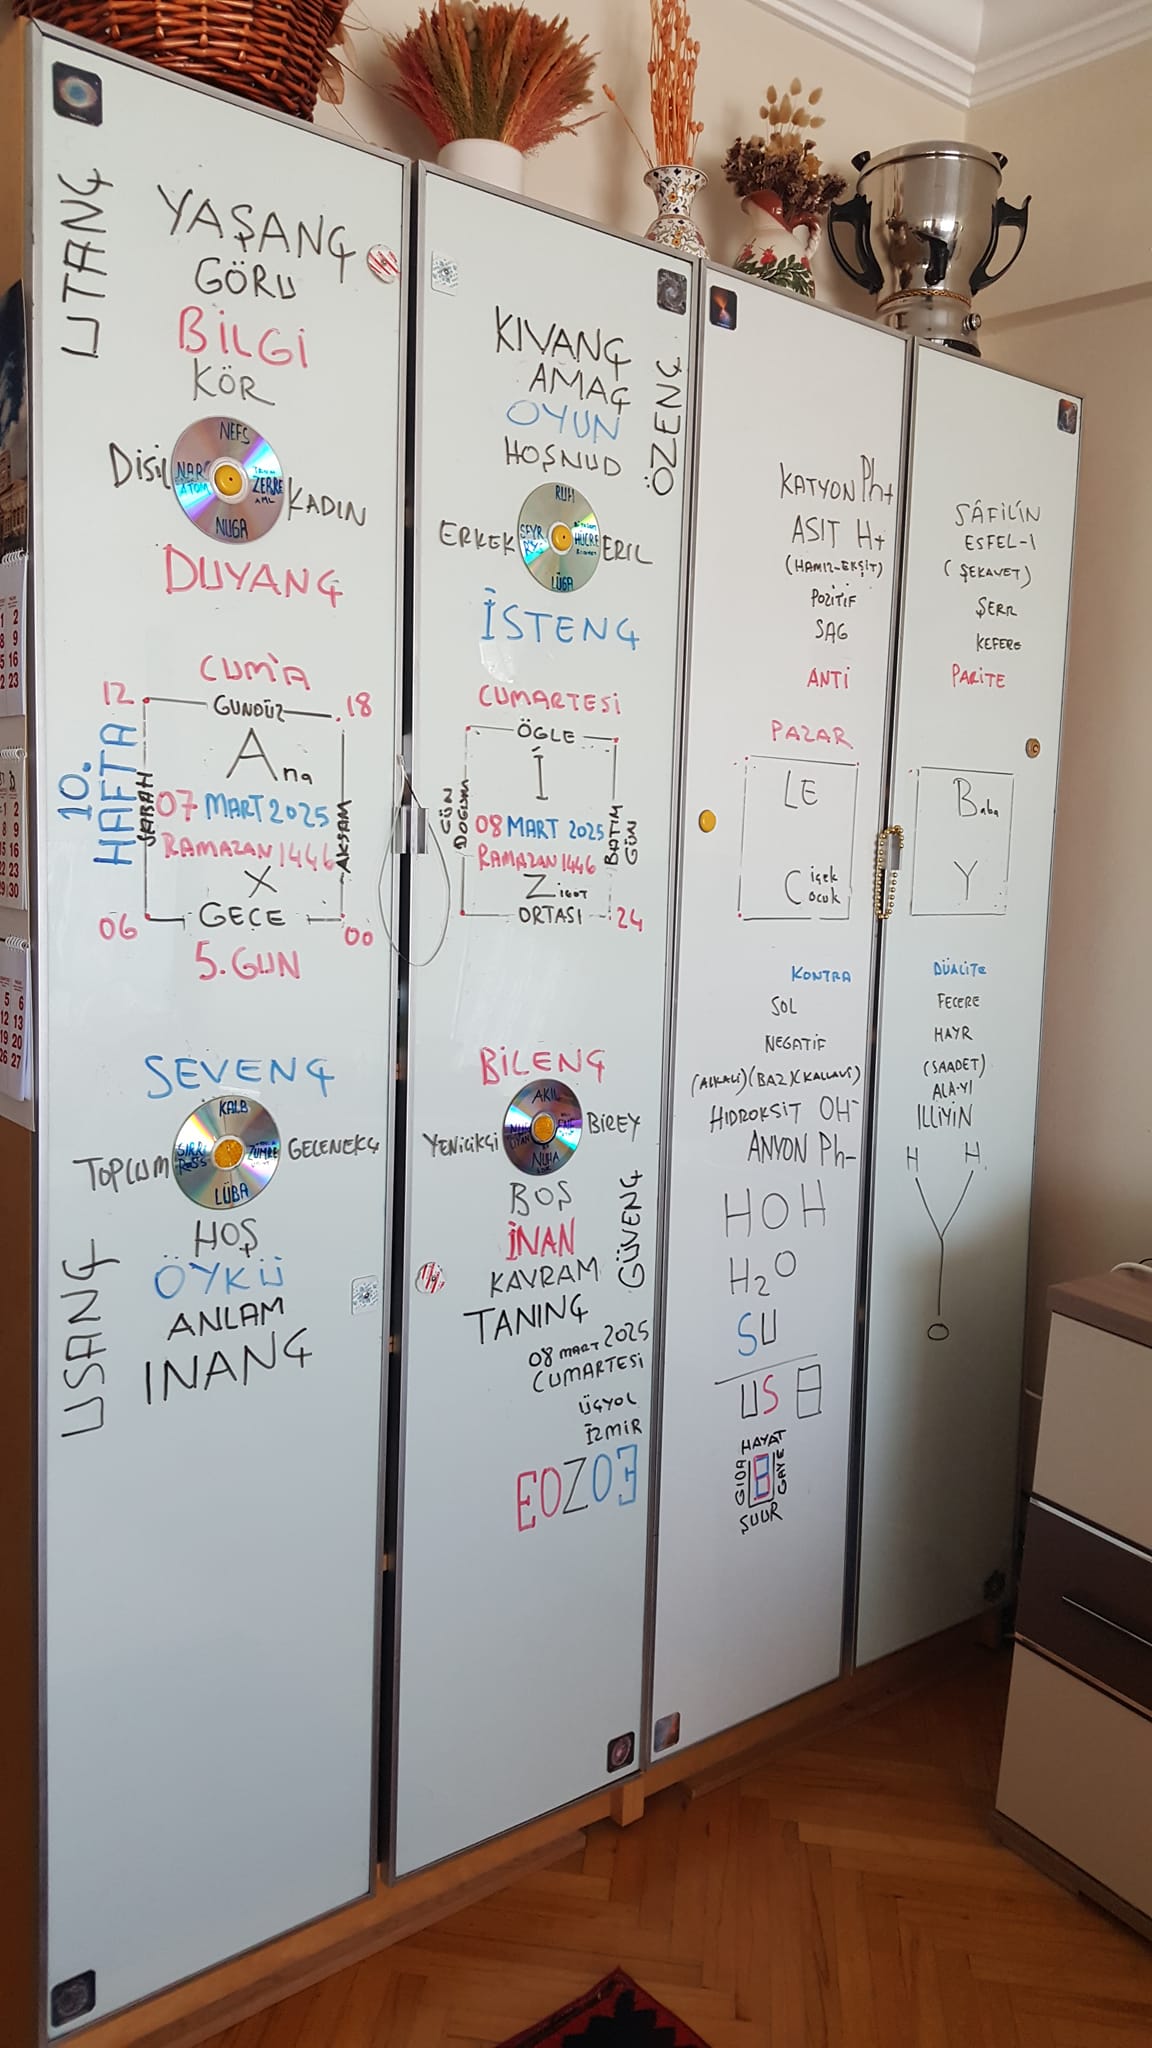 UTANÇ
YAŞANÇ
GÖRÜ
BİLGİ
KÖR
NEFS
DİŞİL
NAR
ATOM
ZERRE
KADIN
NUGA
DUYANÇ
CUM'A
12
GÜNDÜZ
18
10.
HAFTA
SABAH
Ana
07 MART 2025
RAMAZAN 1446
AKŞAM
X
06
GECE
00
5. GÜN
SEVENÇ
KALB
TOPLUM
SIRRI
ZÜMRE
GELENEKÇİ
LÜBA
USANÇ
HOŞ
ÖYKÜ
ANLAM
INANÇ
KIVANÇ
AMAÇ
OYUN
HOŞNUD
ÖZENÇ
RUH
ERKEK
SEYR
HÜCRE
ERİL
LÜGA
İSTENÇ
CUMARTESİ
ÖĞLE
GÜN
DOĞUMU
İ
08 MART 2025
RAMAZAN 1446
BATIM
GÜN
ZİGOT
ORTASI
24
BİLENÇ
AKIL
YENİLİKÇİ
BİREY
NUHA
BOŞ
İNAN
KAVRAM
TANINÇ
GÜVENÇ
08 MART 2025
CUMARTESİ
ÜÇYOL
İZMİR
EOZO3
KATYON Ph+
ASIT H+
(HAMIZ-EKŞİT)
POZİTİF
SAĞ
ANTİ
PAZAR
LE
Çiçek
Çocuk
KONTRA
SOL
NEGATİF
(ALKALİ) (BAZ) (KALLAVİ)
HIDROKSİT OH-
ANYON Ph-
HOH
H2O
SU
US 8
HAYAT
GIDA
GAYE
ŞUUR
SÂFİLÎN
ESFEL-İ
(ŞEKAVET)
ŞERR
KEFERE
PARİTE
Baba
Y
DÜALİTE
FECERE
HAYR
(SAADET)
ALA-YI
İLLİYİN
H H
O